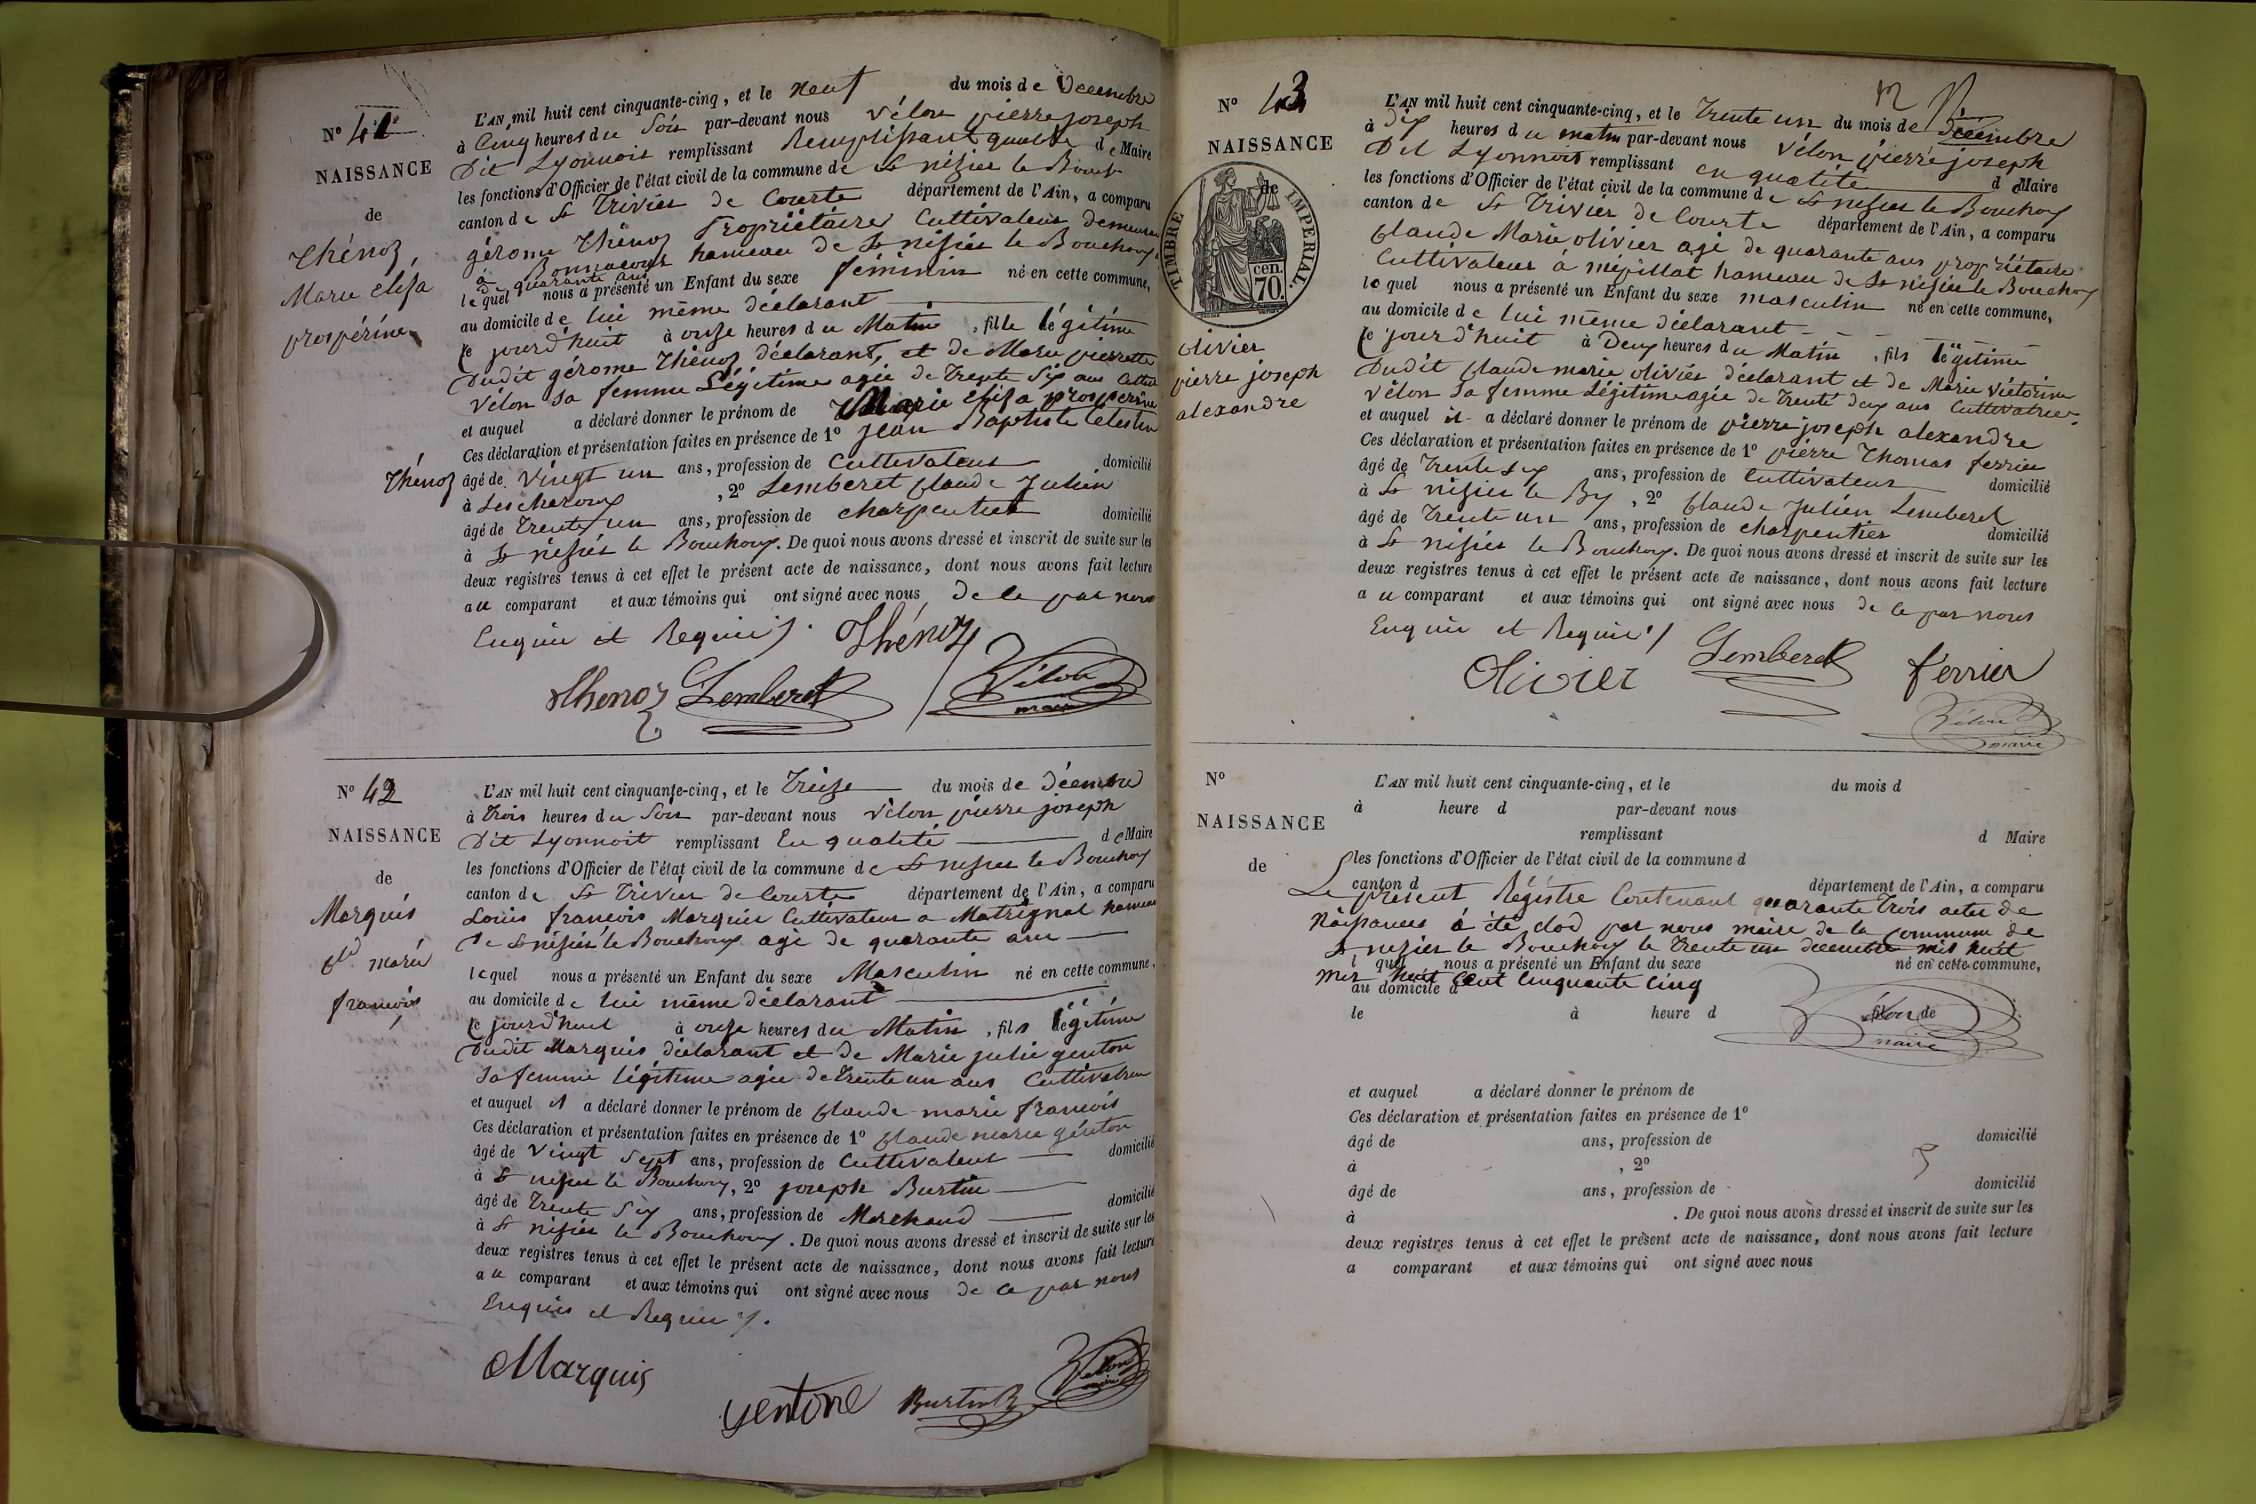 N° 41
NAISSANCE
de
Thénoz,
Marie elisa
prospérine
L'AN mil huit cent cinquante-cinq, et le neuf du mois de Décembre
à Cinq heures du Soir par-devant nous Vélon pierre joseph
Dit Lyonnois remplissant Remplissant qualité de Maire
les fonctions d'Officier de l'état civil de la commune de St nizier le Bouch
canton de St Trivier de Courte département de l'Ain, a comparu
gérome Thénoz Propriétaire Cultivateur demeurant
à Bonnacour hameau de St nizier le Bouchoux
de quarante ans
lequel nous a présenté un Enfant du sexe féminin né en cette commune,
au domicile de lui même déclarant
ce jourd'huit à onze heures du Matin, fille légitime
Dudit gérome Thénoz déclarant, et de Marie pierrette
Vélon sa femme Légitime agée de Trente Six ans Cultiv
et auquel a déclaré donner le prénom de Marie elisa prosperine
Ces déclaration et présentation faites en présence de 1° Jean Baptiste Celestin
Thénoz âgé de Vingt un ans, profession de Cultivateur domicilié
à Lescheroux, 2° Lemberet Claude Julien
âgé de Trente un ans, profession de charpentier domicilié
à St nizier le Bouchoux. De quoi nous avons dressé et inscrit de suite sur les
deux registres tenus à cet effet le présent acte de naissance, dont nous avons fait lecture
au comparant et aux témoins qui ont signé avec nous de ce par nous
Enquis et Requis /.
Thénoz
thenoz Lemberet Vélon
maire
N° 42
NAISSANCE
de
Marquis
Cld marie
francois
L'AN mil huit cent cinquante-cinq, et le Treize du mois de Décembre
à Trois heures du Soir par-devant nous Vélon pierre joseph
Dit Lyonnoit remplissant En qualité de Maire
les fonctions d'Officier de l'état civil de la commune de St nizier le Bouchoux
canton de St Trivier de Courte département de l'Ain, a comparu
Louis francois Marquis Cultivateur a Matrignat hameau
De St nizier le Bouchoux agé de quarante ans
lequel nous a présenté un Enfant du sexe Masculin né en cette commune,
au domicile de lui même déclarant
ce jourd'huit à onze heures du Matin, fils légitime
Dudit Marquis déclarant et de Marie julie genton
Sa femme légitime agée de Trente un ans Cultivatrice
et auquel il a déclaré donner le prénom de Claude marie francois
Ces déclaration et présentation faites en présence de 1° Claude marie génton
âgé de Vingt Sept ans, profession de Cultivateur domicilié
à St nizier le Bouchoux, 2° joseph Burtin
âgé de Trente Six ans, profession de Marchand domicilié
à St nizier le Bouchoux. De quoi nous avons dressé et inscrit de suite sur les
deux registres tenus à cet effet le présent acte de naissance, dont nous avons fait lecture
au comparant et aux témoins qui ont signé avec nous de ce par nous
Enquis et Requis /.
Marquis
gentone Burtin Vélon
maire
N° 43
NAISSANCE
de
TIMBRE IMPERIAL.
70. cen.
olivier
pierre joseph
alexandre
L'AN mil huit cent cinquante-cinq, et le Trente un du mois de Décembre
à Dix heures du matin par-devant nous Vélon pierre joseph
Dit Lyonnois remplissant en qualité de Maire
les fonctions d'Officier de l'état civil de la commune de St nizier le Bouchoux
canton de St Trivier de Courte département de l'Ain, a comparu
Claude Marie olivier agé de quarante ans propriétaire
Cultivateur à mépillat hameau de St nizier le Bouchoux
lequel nous a présenté un Enfant du sexe masculin né en cette commune,
au domicile de lui même déclarant
ce jourd'huit à Deux heures du Matin, fils légitime
Dudit Claude marie olivier déclarant et de Marie Victorine
Vélon sa femme Légitime agée de Trente deux ans Cultivatrice
et auquel il a déclaré donner le prénom de pierre joseph alexandre
Ces déclaration et présentation faites en présence de 1° pierre Thomas ferrier
âgé de Trente six ans, profession de Cultivateur domicilié
à St nizier le By, 2° Claude Julien Lemberet
âgé de Trente un ans, profession de charpentier domicilié
à St nizier le Bouchoux. De quoi nous avons dressé et inscrit de suite sur les
deux registres tenus à cet effet le présent acte de naissance, dont nous avons fait lecture
au comparant et aux témoins qui ont signé avec nous de ce par nous
Enquis et Requis /.
Olivier Lemberet ferrier
Vélon
maire
N°
NAISSANCE
de
L'AN mil huit cent cinquante-cinq, et le du mois d
à heure d par-devant nous
remplissant d Maire
les fonctions d'Officier de l'état civil de la commune d
canton d département de l'Ain, a comparu
Le présent Régistre Contenant quarante trois actes de
Naissances à été clod par nous maire de la commune de
St nizier le Bouchoux le Trente un decembre mil huit
l quel nous a présenté un Enfant du sexe né en cette commune,
mil huit Cent Cinquante Cinq
au domicile d
le à heure d , fil de
Vélon
maire
et auquel a déclaré donner le prénom de
Ces déclaration et présentation faites en présence de 1°
âgé de ans, profession de domicilié
à , 2°
âgé de ans, profession de domicilié
à . De quoi nous avons dressé et inscrit de suite sur les
deux registres tenus à cet effet le présent acte de naissance, dont nous avons fait lecture
a comparant et aux témoins qui ont signé avec nous